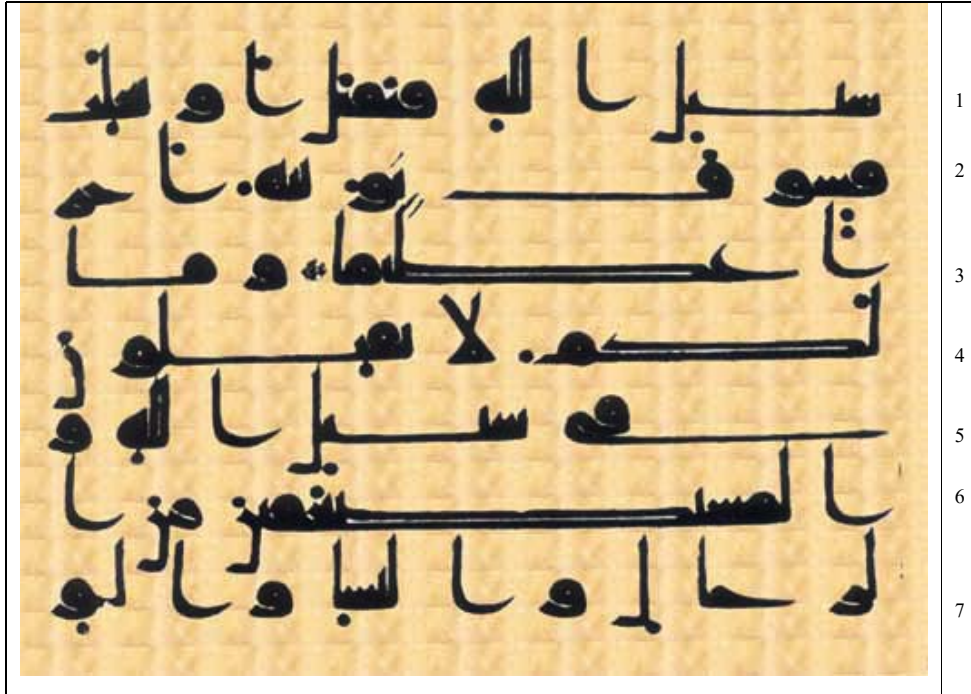 سبيل الله فيقتل او يغلب 1
فسوف نوتيه اجر 2
ا عظيما وما 3
لكم لا تقتلون 4
في سبيل الله و 5
المستضعفين من ا 6
لرجال والنسا والو 7